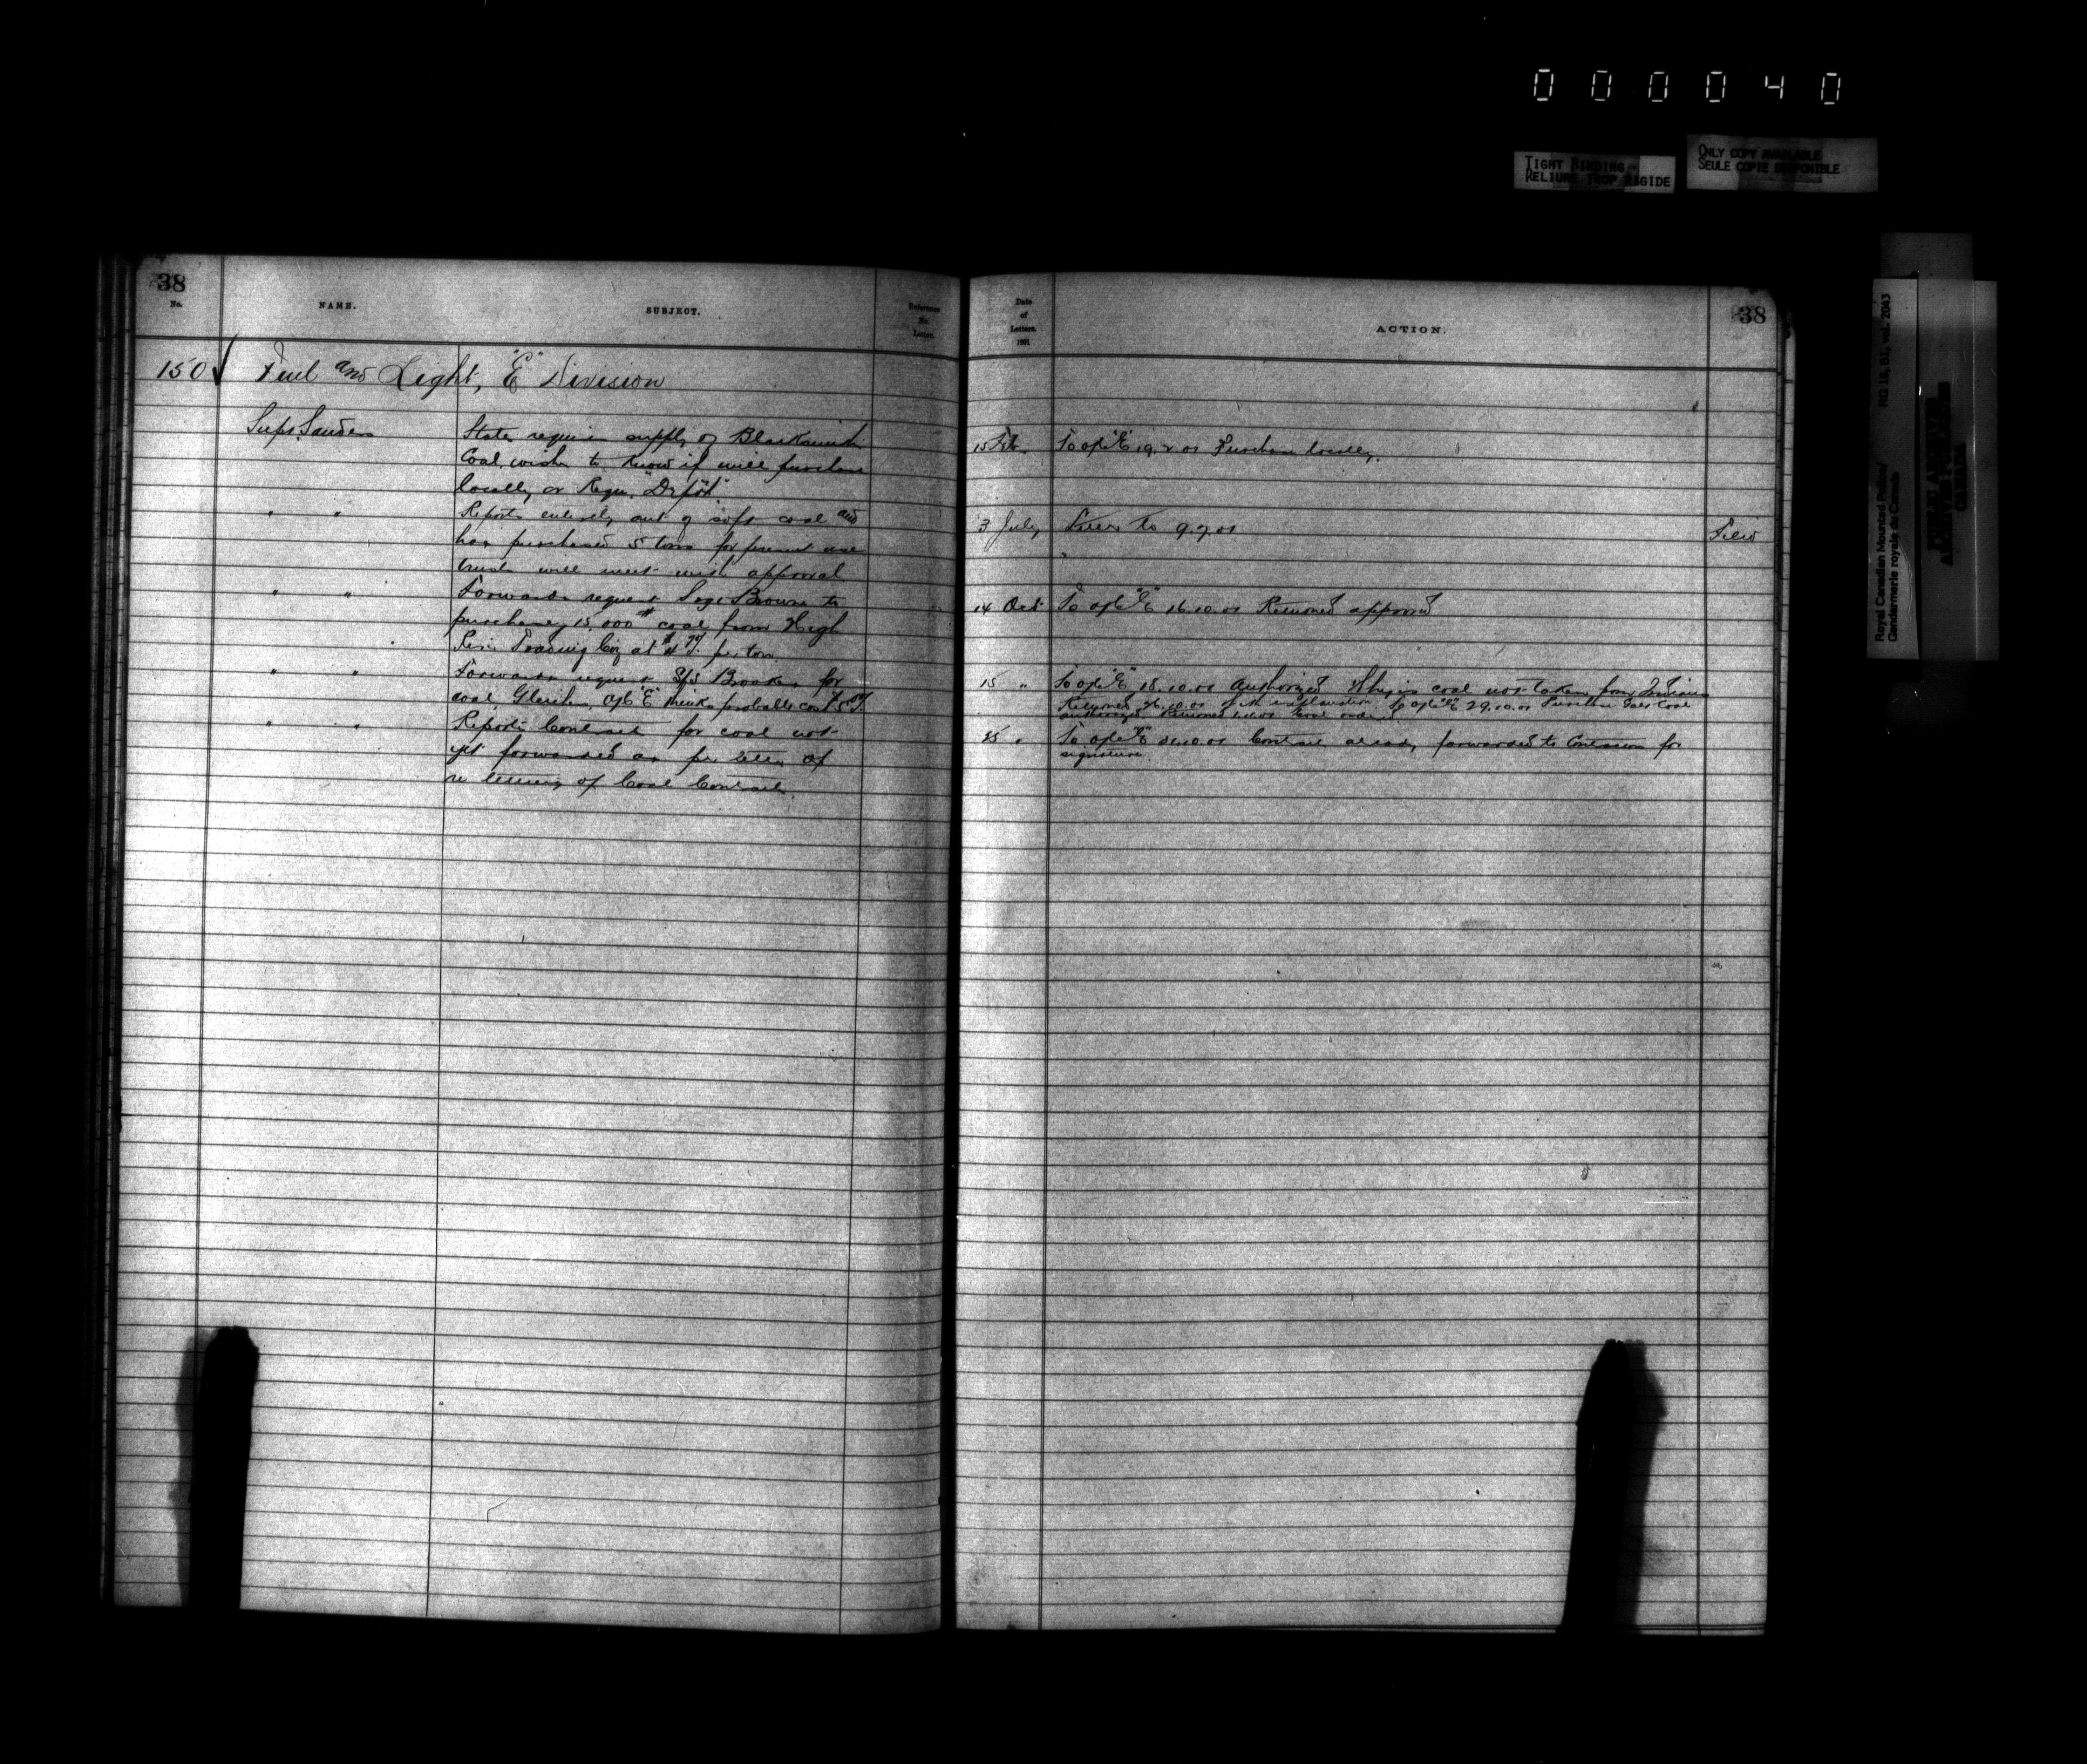 000040
TIGHT BINDING
RELIURE TROP RIGIDE
ONLY COPY AVAILABLE
SEULE COPIE DISPONIBLE
Royal Canadian Mounted Police/
Gendarmerie royale du Canada
RG 18, B1, vol. 2043
PUBLIC ARCHIVES
ARCHIVES PUBLIQUES
CANADA
38
No.
NAME.
SUBJECT.
Reference
No.
Letter.
150 Fuel and Light, "E" Division
Supt Sanders
States requires supply of Blacksmith
Coal, wishes to know if will purchase
locally or Requ. "Depot"
" "
Reports entirely out of soft coal and
has purchased 5 tons for present use
trusts will meet with approval
" "
Forwards request Sergt Brown to
purchase 15,000# coal from High
River Trading Coy at $4 per ton
" "
Forwards request S/S Brooke for
coal, Gleichen, O/C "E" thinks probable cost
" "
Reports Contract for coal not
yet forwarded as per letter of
re letting of Coal Contract.
Date
of
Letters.
1901
ACTION.
38
15 Feb. To O/C "E" 19.2.01 Purchase locally.
3 July 9.7.01 Filed
14 Oct To O/C "E" 16.10.01 Returned approved
15 " To O/C "E" 18.10.01 Authorized Why is coal not taken from Indians
Returned with explanation. To O/C "E" 29.10.01 Purchase Coal
authorized. Returned
25 " To O/C "E" 31.10.01 Contract already forwarded to Contractor for
signature.